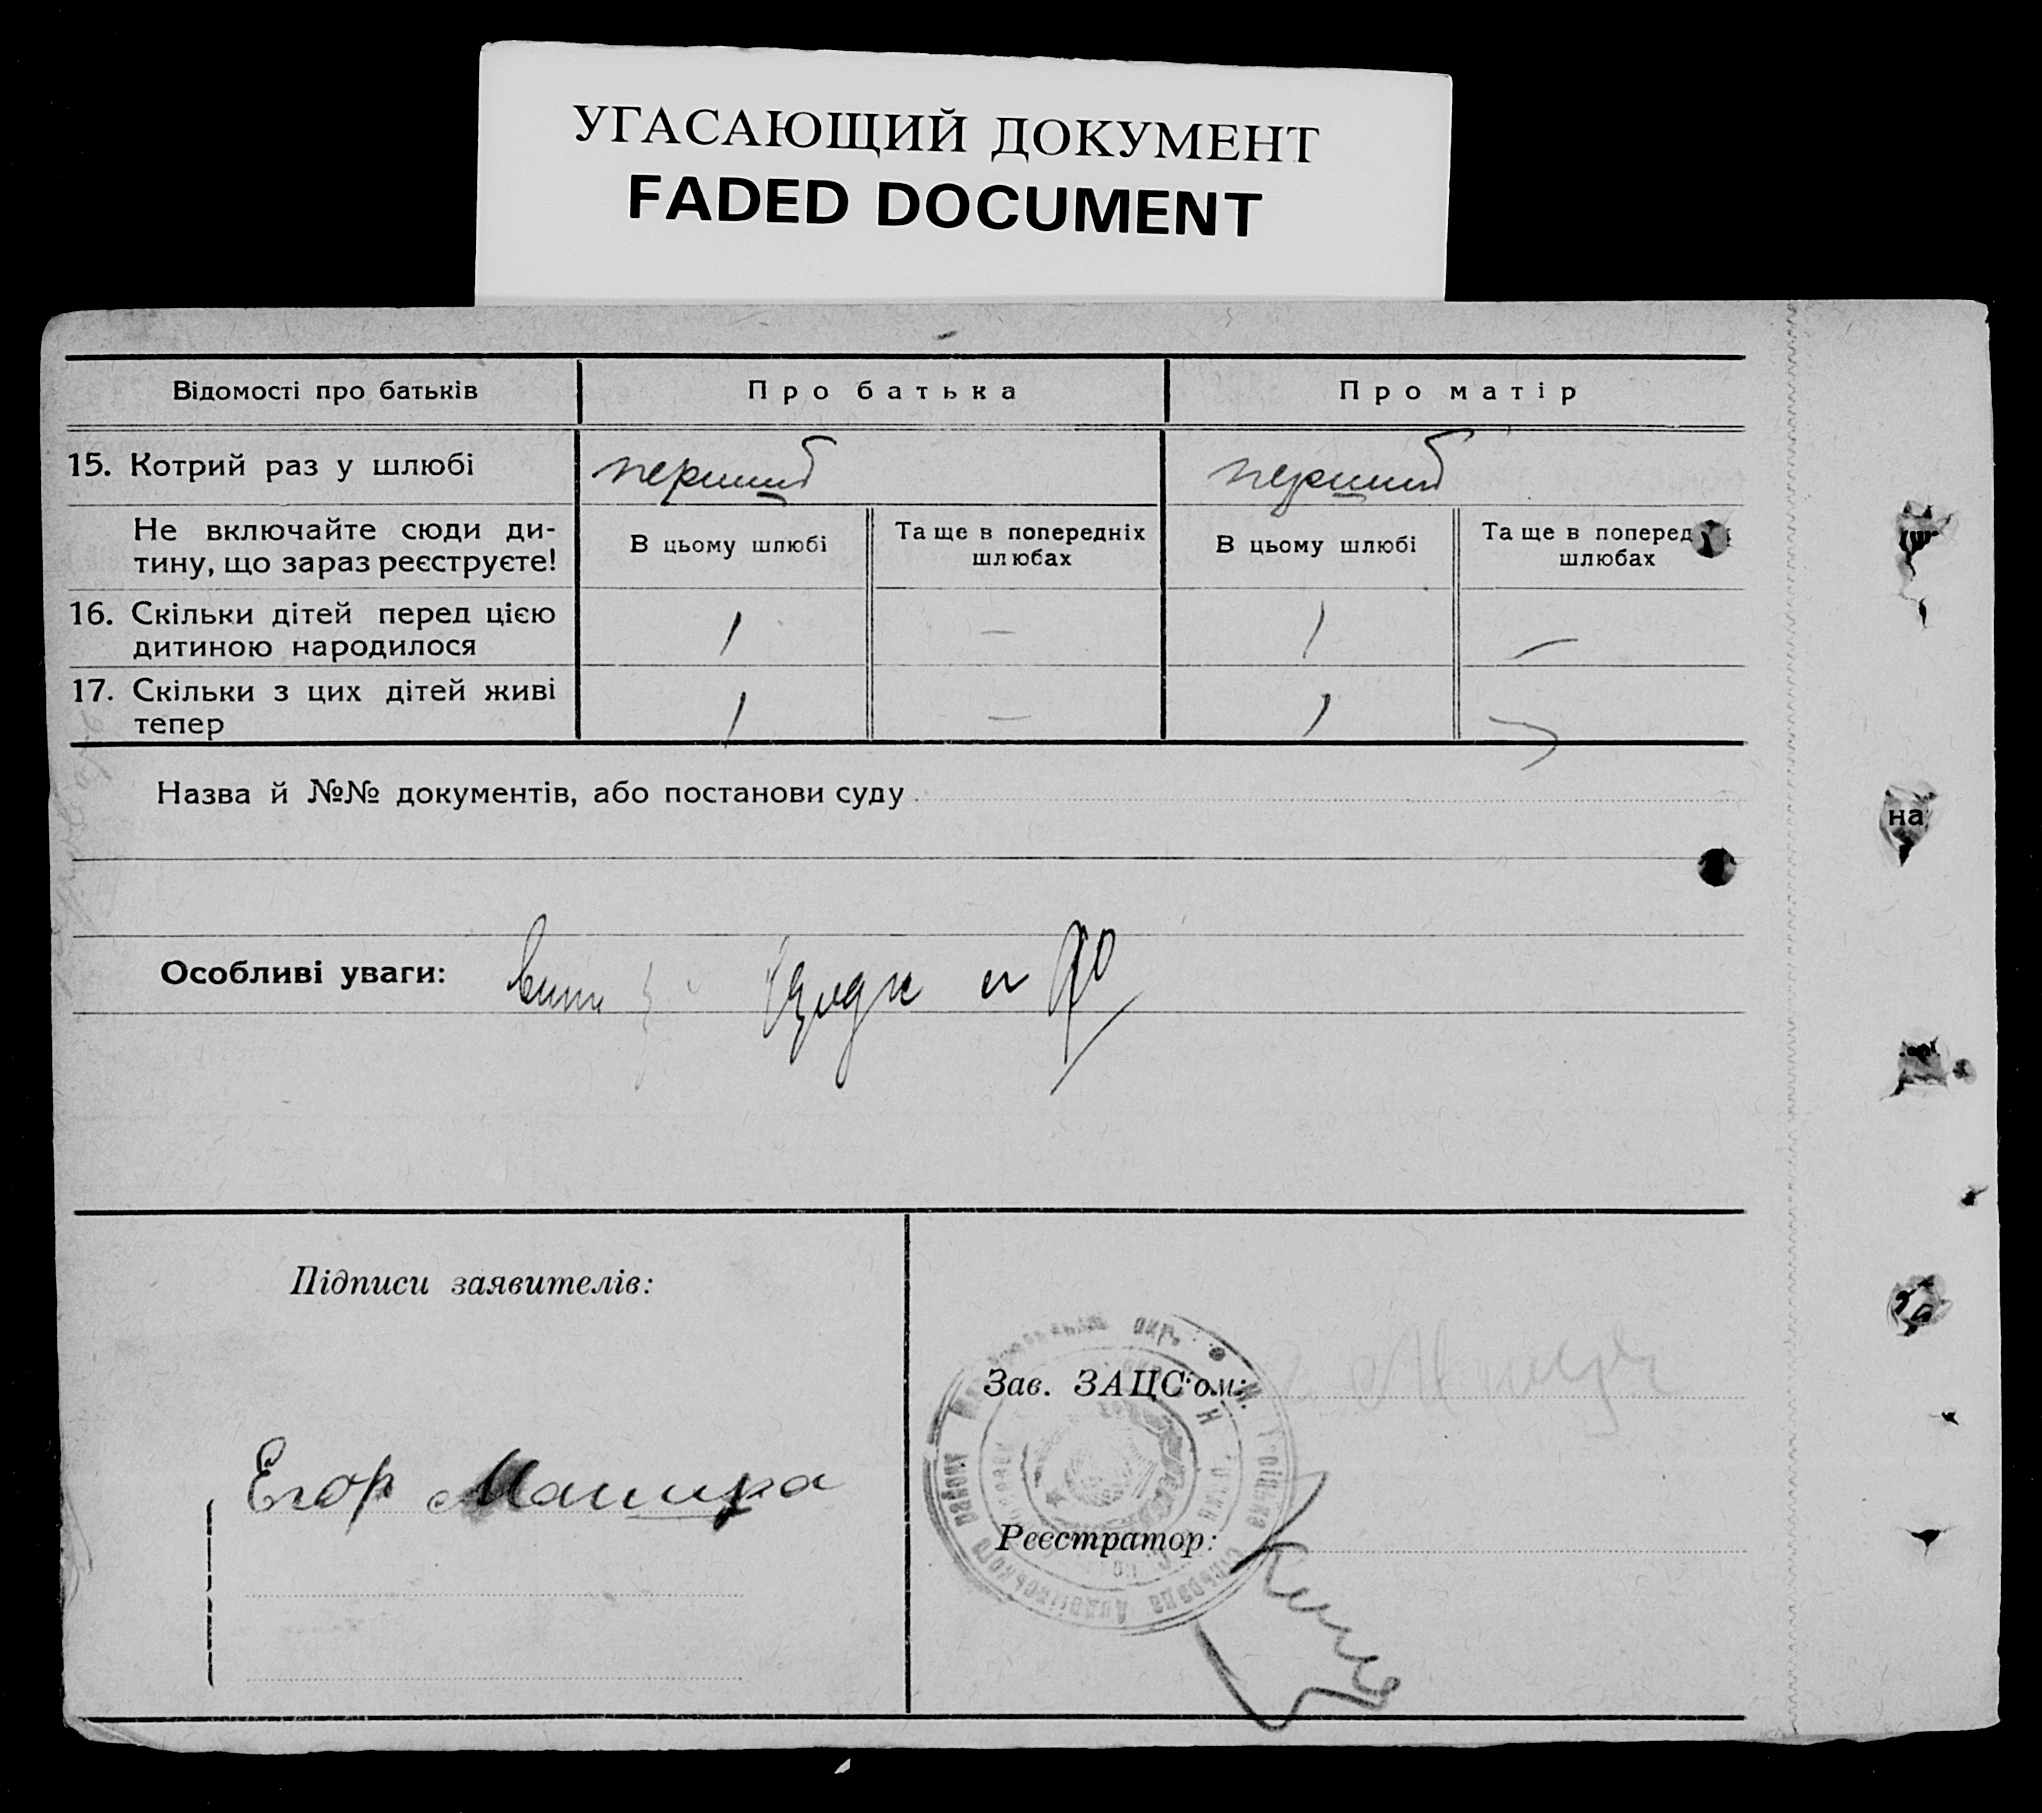 УГАСАЮЩИЙ ДОКУМЕНТ
FADED DOCUMENT
Відомості про батьків
Про батька
Про матір
15. Котрий раз у шлюбі
перший
перший
Не включайте сюди ди-
тину, що зараз реєструєте!
В цьому шлюбі
Та ще в попередніх
шлюбах
В цьому шлюбі
Та ще в поперед
шлюбах
16. Скільки дітей перед цією
дитиною народилося
1
—
1
—
17. Скільки з цих дітей живі
тепер
1
—
1
—
Назва й №№ документів, або постанови суду
на
Особливі уваги:
Підписи заявителів:
Зав. ЗАЦС'ом:
Егор
Реєстратор:
району